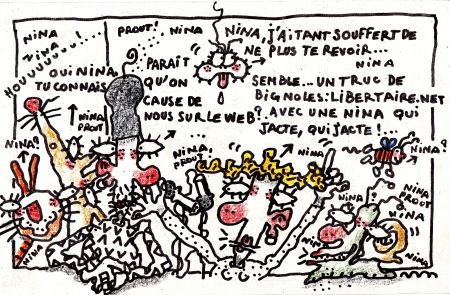 NINA
NINA
HOUUUUUUU!...
OUI NINA,
TU CONNAIS
PROUT! NINA
PARAÎT
QU'ON
CAUSE DE
NOUS SUR LE WEB?
NINA, J'AI TANT SOUFFERT DE
NE PLUS TE REVOIR...
NINA
SEMBLE... UN TRUC DE
BIGNOLES: LIBERTAIRE.NET
AVEC UNE NINA QUI
JACTE, QUI JACTE!...
NINA
PROUT
NINA!
NINA,
PROUT
NINA
NINA?
NINA
PROUT
NINA
NINA
NINA
NINA
NINA